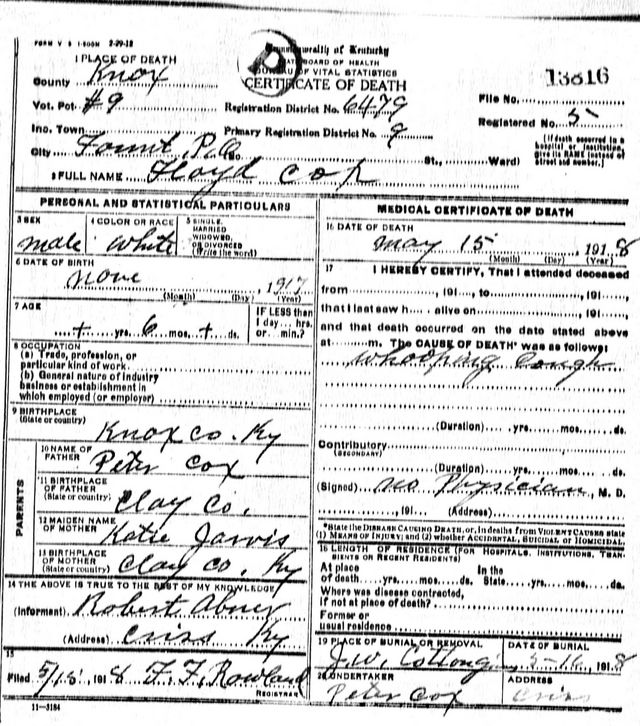 FORM V S 1-500M 2-29-18
Commonwealth of Kentucky
STATE BOARD OF HEALTH
BUREAU OF VITAL STATISTICS
CERTIFICATE OF DEATH
13816
1 PLACE OF DEATH
County Knox
Vot. Pct #9
Inc. Town
City Fount P.O. No. St., Ward)
Registration District No. 6479
Primary Registration District No. 9
File No.
Registered No. 5
(If death occurred in a
hospital or institution,
give its NAME instead of
street and number.)
2 FULL NAME Floyd Cox
PERSONAL AND STATISTICAL PARTICULARS
3 SEX
male
4 COLOR OR RACE
white
5 SINGLE,
MARRIED
WIDOWED,
OR DIVORCED
(Write the word)
6 DATE OF BIRTH
Nove , 1917
(Month) (Day) (Year)
7 AGE
+ yrs. 6 mos. + ds.
IF LESS than
1 day... hrs.
or... min.?
8 OCCUPATION
(a) Trade, profession, or
particular kind of work
(b) General nature of industry
business or establishment in
which employed (or employer)
9 BIRTHPLACE
(State or country)
Knox Co. Ky
PARENTS
10 NAME OF
FATHER
Peter Cox
11 BIRTHPLACE
OF FATHER
(State or country)
Clay Co.
12 MAIDEN NAME
OF MOTHER
Katie Jarvis
13 BIRTHPLACE
OF MOTHER
(State or country)
Clay Co. Ky
14 THE ABOVE IS TRUE TO THE BEST OF MY KNOWLEDGE
(Informant) Robert Abner
(Address) Ky
15
Filed 5/15 1918 F. F. Rowland
REGISTRAR
11-3184
MEDICAL CERTIFICATE OF DEATH
16 DATE OF DEATH
May 15 1918
(Month) (Day) (Year)
17 I HEREBY CERTIFY, That I attended deceased
from , 191 , to , 191 ,
that I last saw h alive on , 191 ,
and that death occurred on the date stated above
at m. The CAUSE OF DEATH* was as follows:
Whooping Cough
(Duration) yrs. mos. ds.
Contributory
(SECONDARY)
(Duration) yrs. mos. ds.
(Signed) No Physician, M. D.
, 191 (Address)
*State the DISEASE CAUSING DEATH, or, in deaths from VIOLENT CAUSES state
(1) MEANS OF INJURY; and (2) whether ACCIDENTAL, SUICIDAL or HOMICIDAL.
18 LENGTH OF RESIDENCE (FOR HOSPITALS, INSTITUTIONS, TRANSIENTS OR RECENT RESIDENTS)
At place In the
of death yrs. mos. ds. State yrs. mos. ds.
Where was disease contracted,
If not at place of death?
Former or
usual residence
19 PLACE OF BURIAL OR REMOVAL
J. W.
DATE OF BURIAL
5-16, 1918
20 UNDERTAKER
Peter Cox
ADDRESS